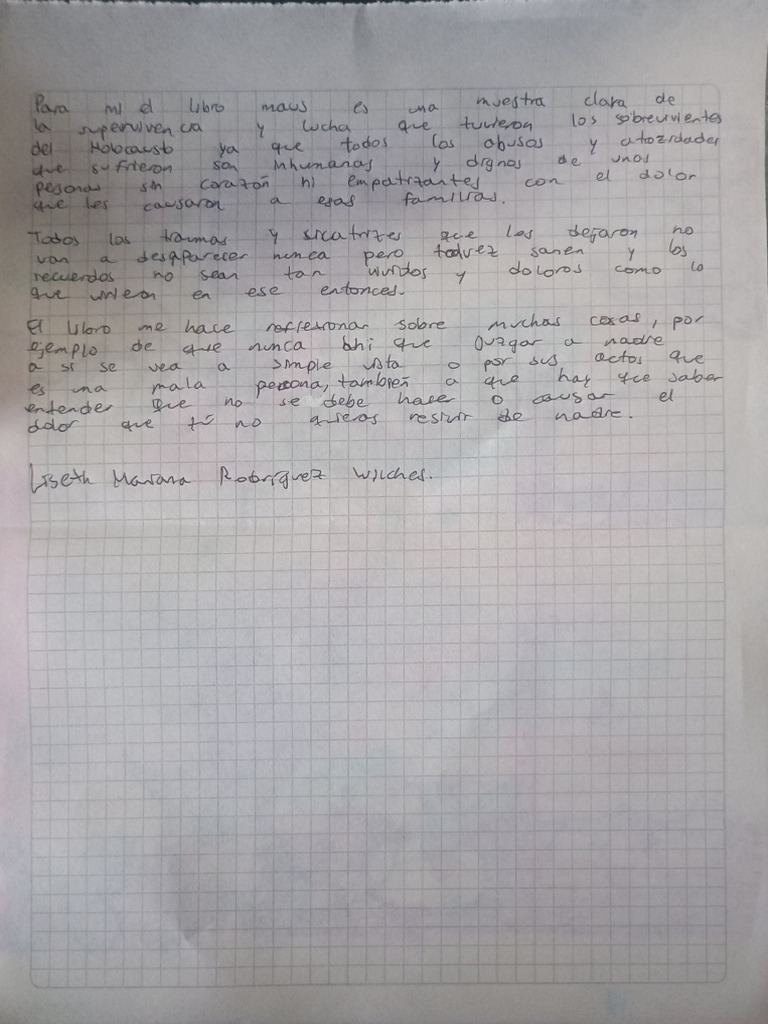 Para mi el libro maus es una muestra clara de
la supervivencia y lucha que tuvieron los sobrevivientes
del Holocausto ya que todos los abusos y atozidades
que sufrieron son inhumanas y dignos de unas
pesonas sin corazón ni empatizantes con el dolor
que les causaron a esas familias.
Todos los traumas y sicatrizes que les dejaron no
van a desaparecer nunca pero talvez sanen y los
recuerdos no sean tan vividos y doloros como lo
que vivieon en ese entonces.
El libro me hace reflexionar sobre muchas cosas, por
ejemplo de que nunca hay que juzgar a nadie
a si se vea a simple vista o por sus actos que
es una mala persona, también a que hay que saber
entender que no se debe hacer o causar el
dolor que tú no quieras resivir de nadie.
Liseth Mariana Rodriguez Wilches.